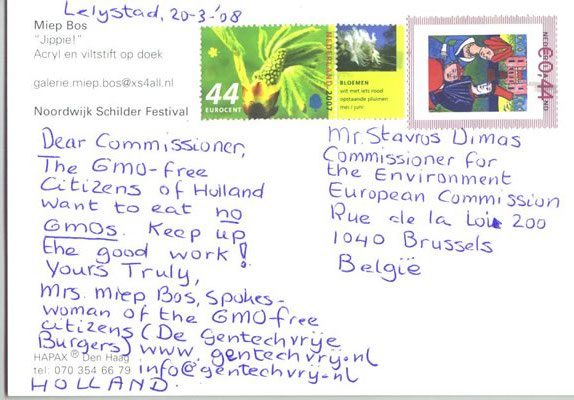 Lelystad, 20-3-'08
Miep Bos
"Jippie!"
Acryl en viltstift op doek
galerie.miep.bos@xs4all.nl
Noordwijk Schilder Festival
44
EUROCENT
NEDERLAND 2007
BLOEMEN
wit met iets rood
opstaande pluimen
mei / juni
NEDERLAND
€0,44
Dear Commissioner,
The GMO-free
Citizens of Holland
want to eat no
GMOs. Keep up
the good work!
Yours Truly,
Mrs. Miep Bos, Spokes-
woman of the GMO-free
citizens (De Gentechvrije
Burgers) www.gentechvrij.nl
info@gentechvrij.nl
HOLLAND.
HAPAX ® Den Haag
tel: 070 354 66 79
Mr. Stavros Dimas
Commissioner for
the Environment
European Commission
Rue de la Loi 200
1040 Brussels
België